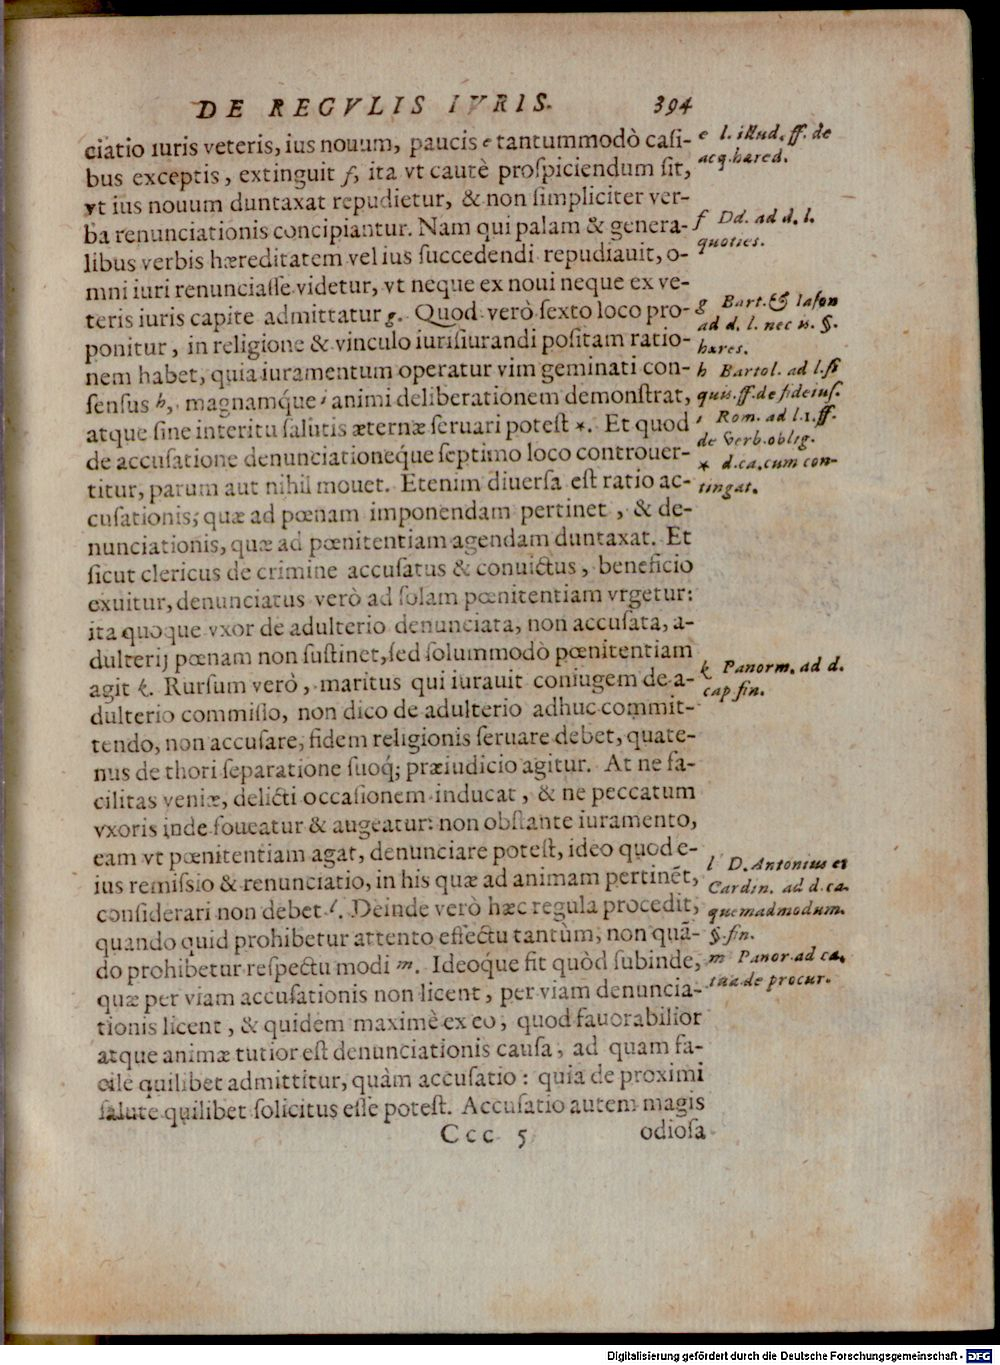 DE REGVLIS IVRIS. 394
ciatio iuris veteris, ius nouum, paucis e tantummodò casi-
bus exceptis, extinguit f, ita vt cautè prospiciendum sit,
vt ius nouum duntaxat repudietur, & non simpliciter ver-
ba renunciationis concipiantur. Nam qui palam & genera-
libus verbis hæreditatem vel ius succedendi repudiauit, o-
mni iuri renunciasse videtur, vt neque ex noui neque ex ve-
teris iuris capite admittatur g. Quod verò sexto loco pro-
ponitur, in religione & vinculo iurisiurandi positam ratio-
nem habet, quia iuramentum operatur vim geminati con-
sensus h, magnamq́ue i animi deliberationem demonstrat,
atque sine interitu salutis æternæ seruari potest *. Et quod
de accusatione denunciationeq́ue septimo loco controuer-
titur, parum aut nihil mouet. Etenim diuersa est ratio ac-
cusationis; quæ ad pœnam imponendam pertinet, & de-
nunciationis, quæ ad pœnitentiam agendam duntaxat. Et
sicut clericus de crimine accusatus & conuictus, beneficio
exuitur, denunciatus verò ad solam pœnitentiam vrgetur:
ita quoque vxor de adulterio denunciata, non accusata, a-
dulterij pœnam non sustinet, sed solummodò pœnitentiam
agit k. Rursum verò, maritus qui iurauit coniugem de a-
dulterio commisso, non dico de adulterio adhuc commit-
tendo, non accusare, fidem religionis seruare debet, quate-
nus de thori separatione suoq́; præiudicio agitur. At ne fa-
cilitas veniæ, delicti occasionem inducat, & ne peccatum
vxoris inde foueatur & augeatur: non obstante iuramento,
eam vt pœnitentiam agat, denunciare potest, ideo quod e-
ius remissio & renunciatio, in his quæ ad animam pertinẽt,
considerari non debet l. Deinde verò hæc regula procedit,
quando quid prohibetur attento effectu tantùm, non quã-
do prohibetur respectu modi m. Ideoq́ue fit quòd subinde,
quæ per viam accusationis non licent, per viam denuncia-
tionis licent, & quidem maximè ex eo, quod fauorabilior
atque animæ tutior est denunciationis causa, ad quam fa-
cile quilibet admittitur, quàm accusatio: quia de proximi
salute quilibet solicitus esse potest. Accusatio autem magis
Ccc 5 odiosa
e l. illud. ff. de
acq. hæred.
f Dd. ad d. l.
quoties.
g Bart. & Iason
ad d. l. nec is. §.
hæres.
h Bartol. ad l. si
quis. ff. de fideius.
i Rom. ad l. 1. ff.
de verb. oblig.
* d. ca. cum con-
tingat.
k Panorm. ad d.
cap fin.
l D. Antonius et
Cardin. ad d. ca.
quemadmodum.
§. fin.
m Panor. ad ca.
tua de procur.
Digitalisierung gefördert durch die Deutsche Forschungsgemeinschaft - DFG